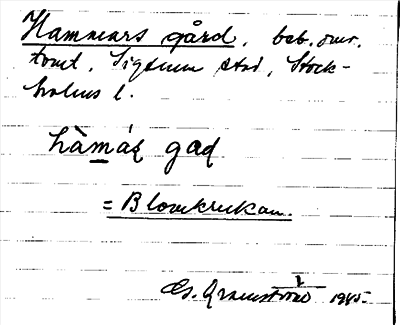 Hammars gård, beb. omr.
tomt, Sigtuna stad, Stock-
holms l.
hàmáṣ gaḍ
= Blomkrukan.
1945